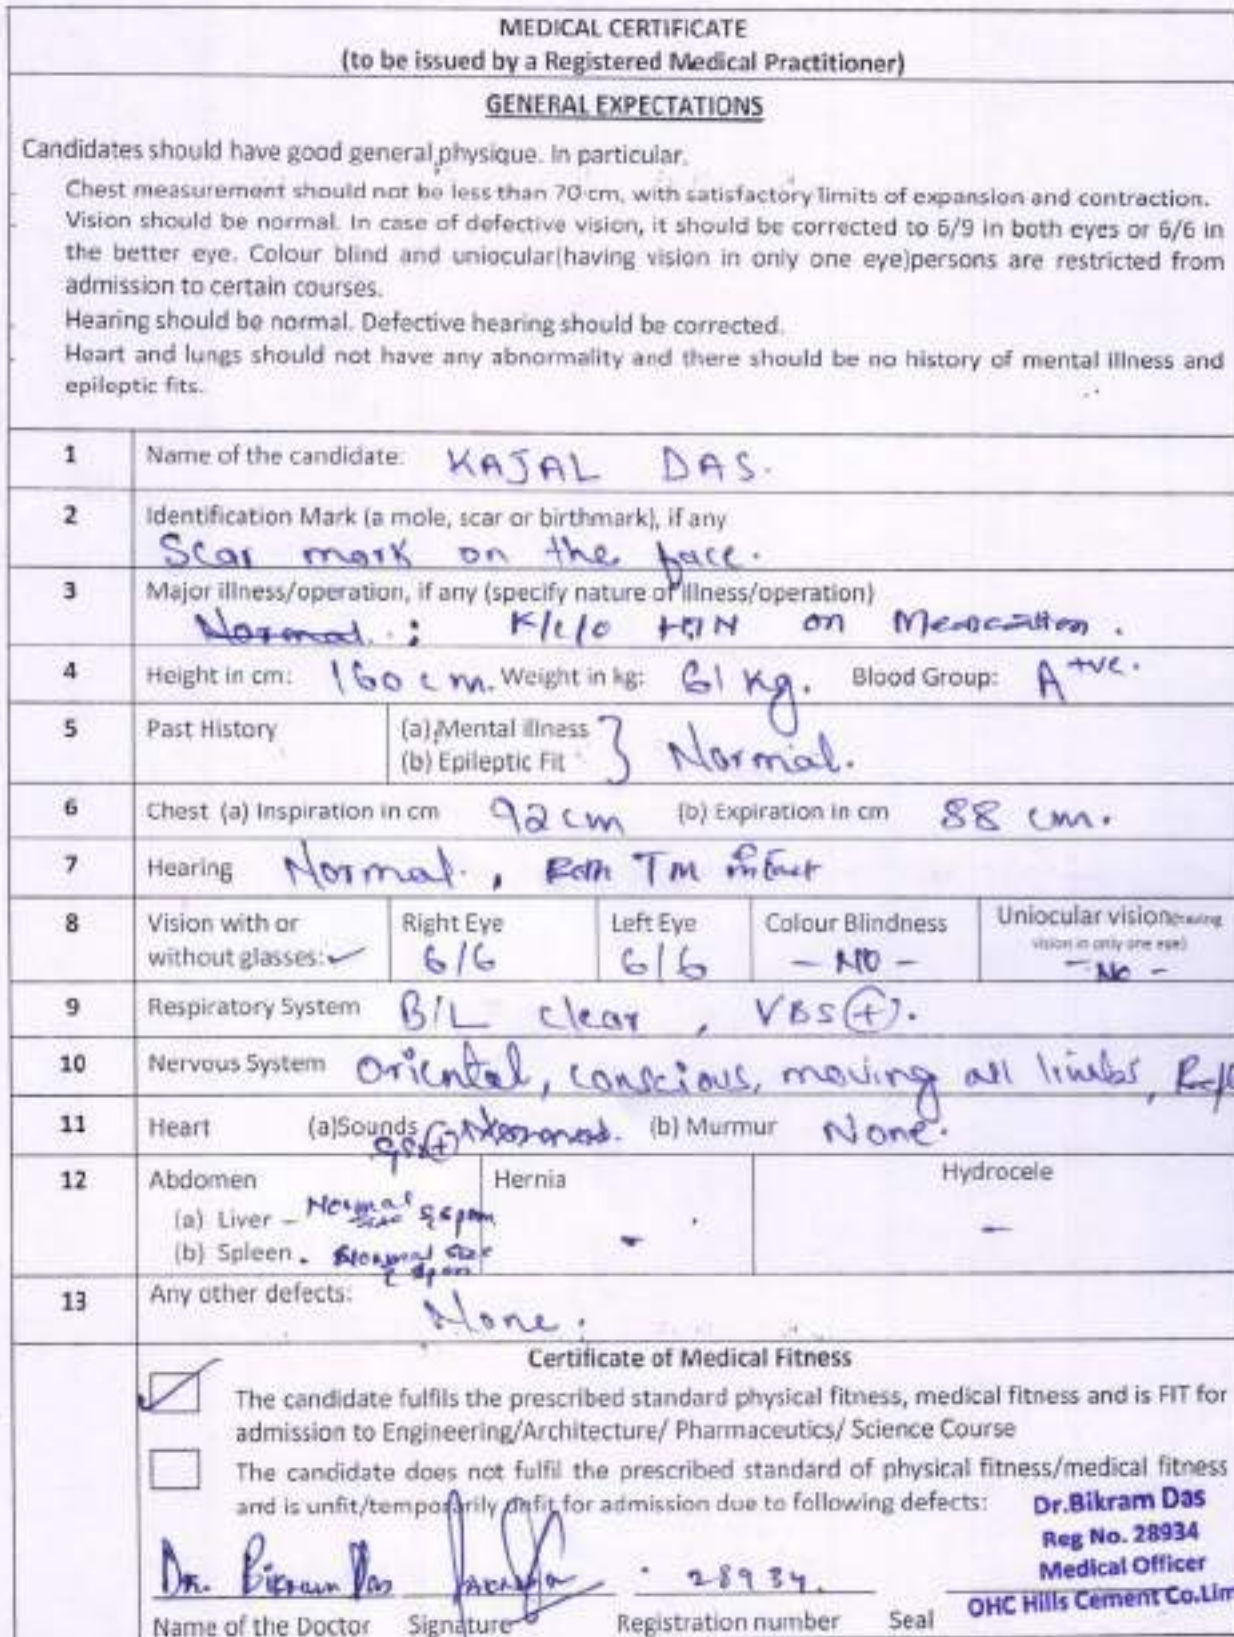 MEDICAL CERTIFICATE
(to be issued by a Registered Medical Practitioner)
GENERAL EXPECTATIONS
Candidates should have good general physique. In particular,
- Chest measurement should not be less than 70 cm, with satisfactory limits of expansion and contraction.
- Vision should be normal. In case of defective vision, it should be corrected to 6/9 in both eyes or 6/6 in
the better eye. Colour blind and uniocular(having vision in only one eye)persons are restricted from
admission to certain courses.
- Hearing should be normal. Defective hearing should be corrected.
- Heart and lungs should not have any abnormality and there should be no history of mental illness and
epileptic fits.
1 Name of the candidate: KAJAL DAS.
2 Identification Mark (a mole, scar or birthmark), if any
Scar mark on the face.
3 Major illness/operation, if any (specify nature of illness/operation)
Normal : K/c/o HTN on Medication.
4 Height in cm: 160 cm. Weight in kg: 61 Kg. Blood Group: A +ve.
5 Past History (a) Mental illness
(b) Epileptic Fit } Normal.
6 Chest (a) Inspiration in cm 92 cm (b) Expiration in cm 88 cm.
7 Hearing Normal, Both TM intact
8 Vision with or without glasses: ✓ Right Eye 6/6 Left Eye 6/6 Colour Blindness - NO - Uniocular vision(having vision in only one eye) - No -
9 Respiratory System B/L clear, VBS(+).
10 Nervous System Oriental, conscious, moving all limbs,
11 Heart (a)Sounds (b) Murmur None.
12 Abdomen Hernia - Hydrocele -
(a) Liver - Normal
(b) Spleen. Normal size
13 Any other defects: None.
Certificate of Medical Fitness
✓ The candidate fulfils the prescribed standard physical fitness, medical fitness and is FIT for
admission to Engineering/Architecture/ Pharmaceutics/ Science Course
The candidate does not fulfil the prescribed standard of physical fitness/medical fitness
and is unfit/temporarily unfit for admission due to following defects:
Dr.Bikram Das
Reg No. 28934
Medical Officer
OHC Hills Cement Co.Lim
Dr. Bikram Das 28934.
Name of the Doctor Signature Registration number Seal